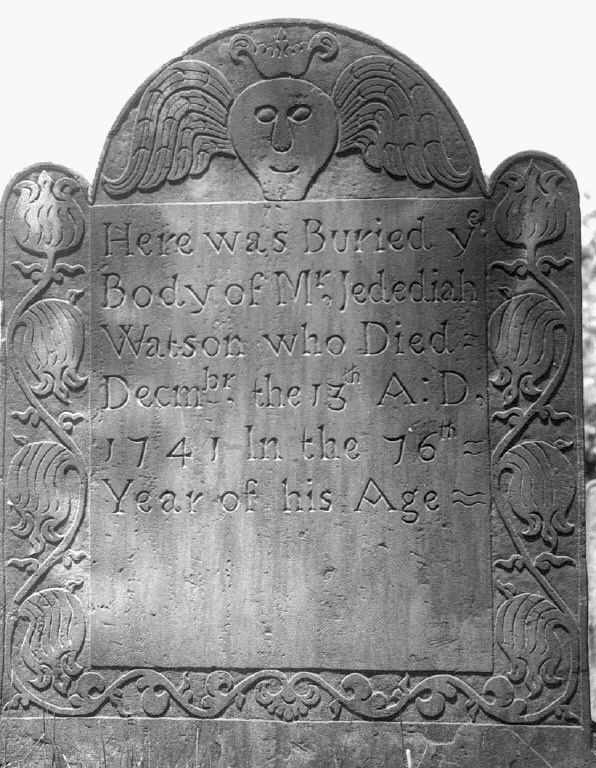 Here was Buried yᵉ
Body of Mʳ. Jedediah
Watson who Died =
Decmᵇʳ. the 13ᵗʰ A: D,
1741 In the 76ᵗʰ =
Year of his Age ≈